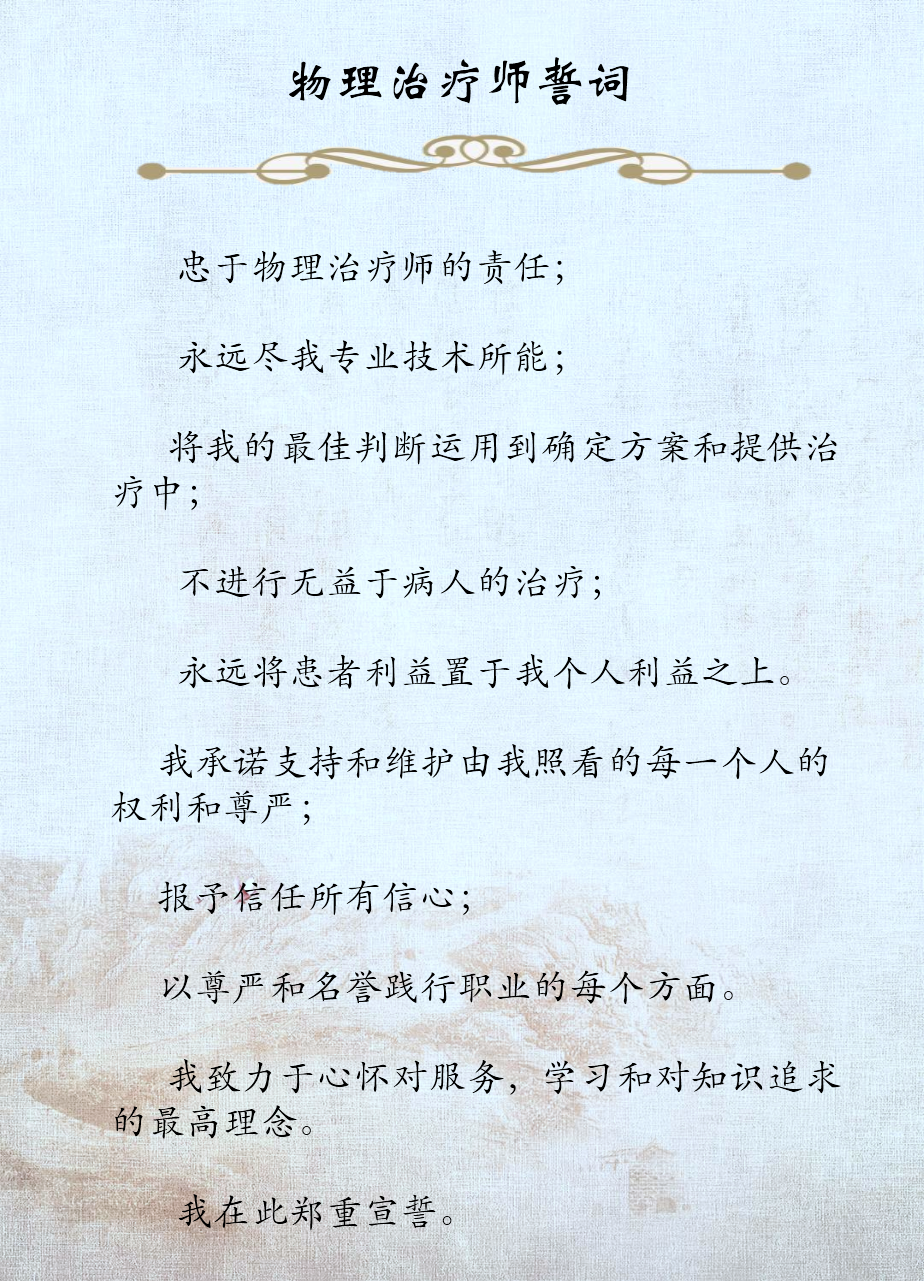 物理治疗师誓词
忠于物理治疗师的责任；
永远尽我专业技术所能；
将我的最佳判断运用到确定方案和提供治
疗中；
不进行无益于病人的治疗；
永远将患者利益置于我个人利益之上。
我承诺支持和维护由我照看的每一个人的
权利和尊严；
报予信任所有信心；
以尊严和名誉践行职业的每个方面。
我致力于心怀对服务，学习和对知识追求
的最高理念。
我在此郑重宣誓。